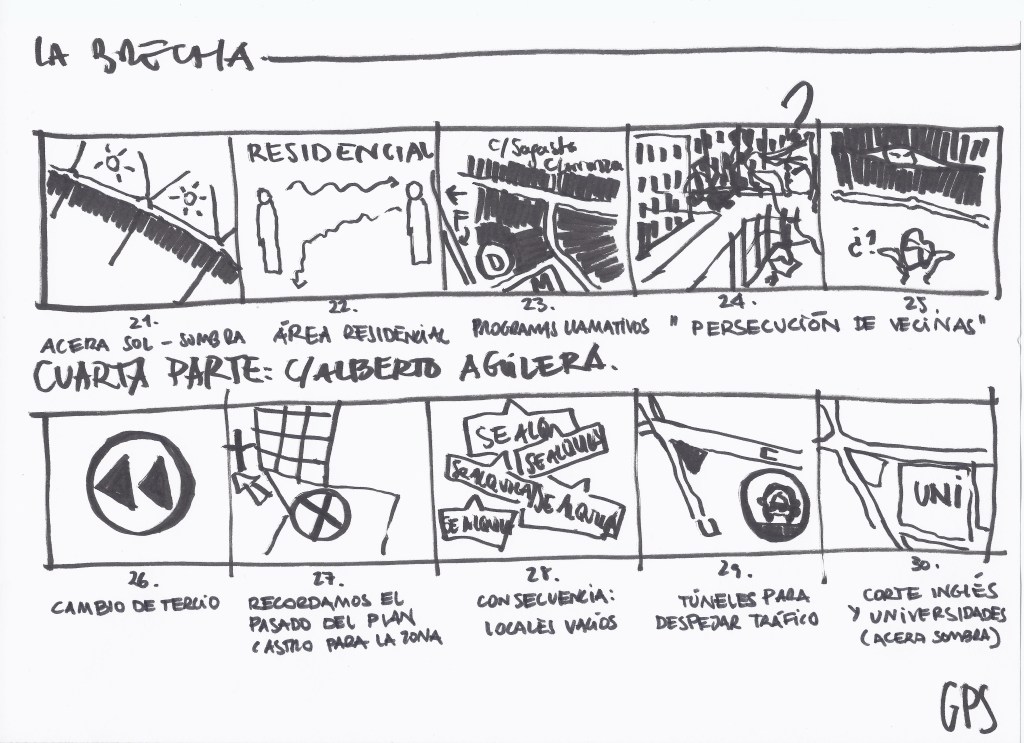 LA BRECHA
RESIDENCIAL
C/Sagasta
D
M
¿?
21.
22.
23.
24.
25
ACERA SOL - SOMBRA
ÁREA RESIDENCIAL
PROGRAMAS LLAMATIVOS
"PERSECUCIÓN DE VECINAS"
CUARTA PARTE: C/ALBERTO AGUILERA.
SE ALQ
SE ALQUILA
SE ALQUILA
SE ALQUILA
SE ALQUILA
UNI
26.
27.
28.
29.
30.
CAMBIO DE TERCIO
RECORDAMOS EL
PASADO DEL PLAN
CASTRO PARA LA ZONA
CONSECUENCIA:
LOCALES VACÍOS
TÚNELES PARA
DESPEJAR TRÁFICO
CORTE INGLÉS
Y UNIVERSIDADES
(ACERA SOMBRA)
GPS